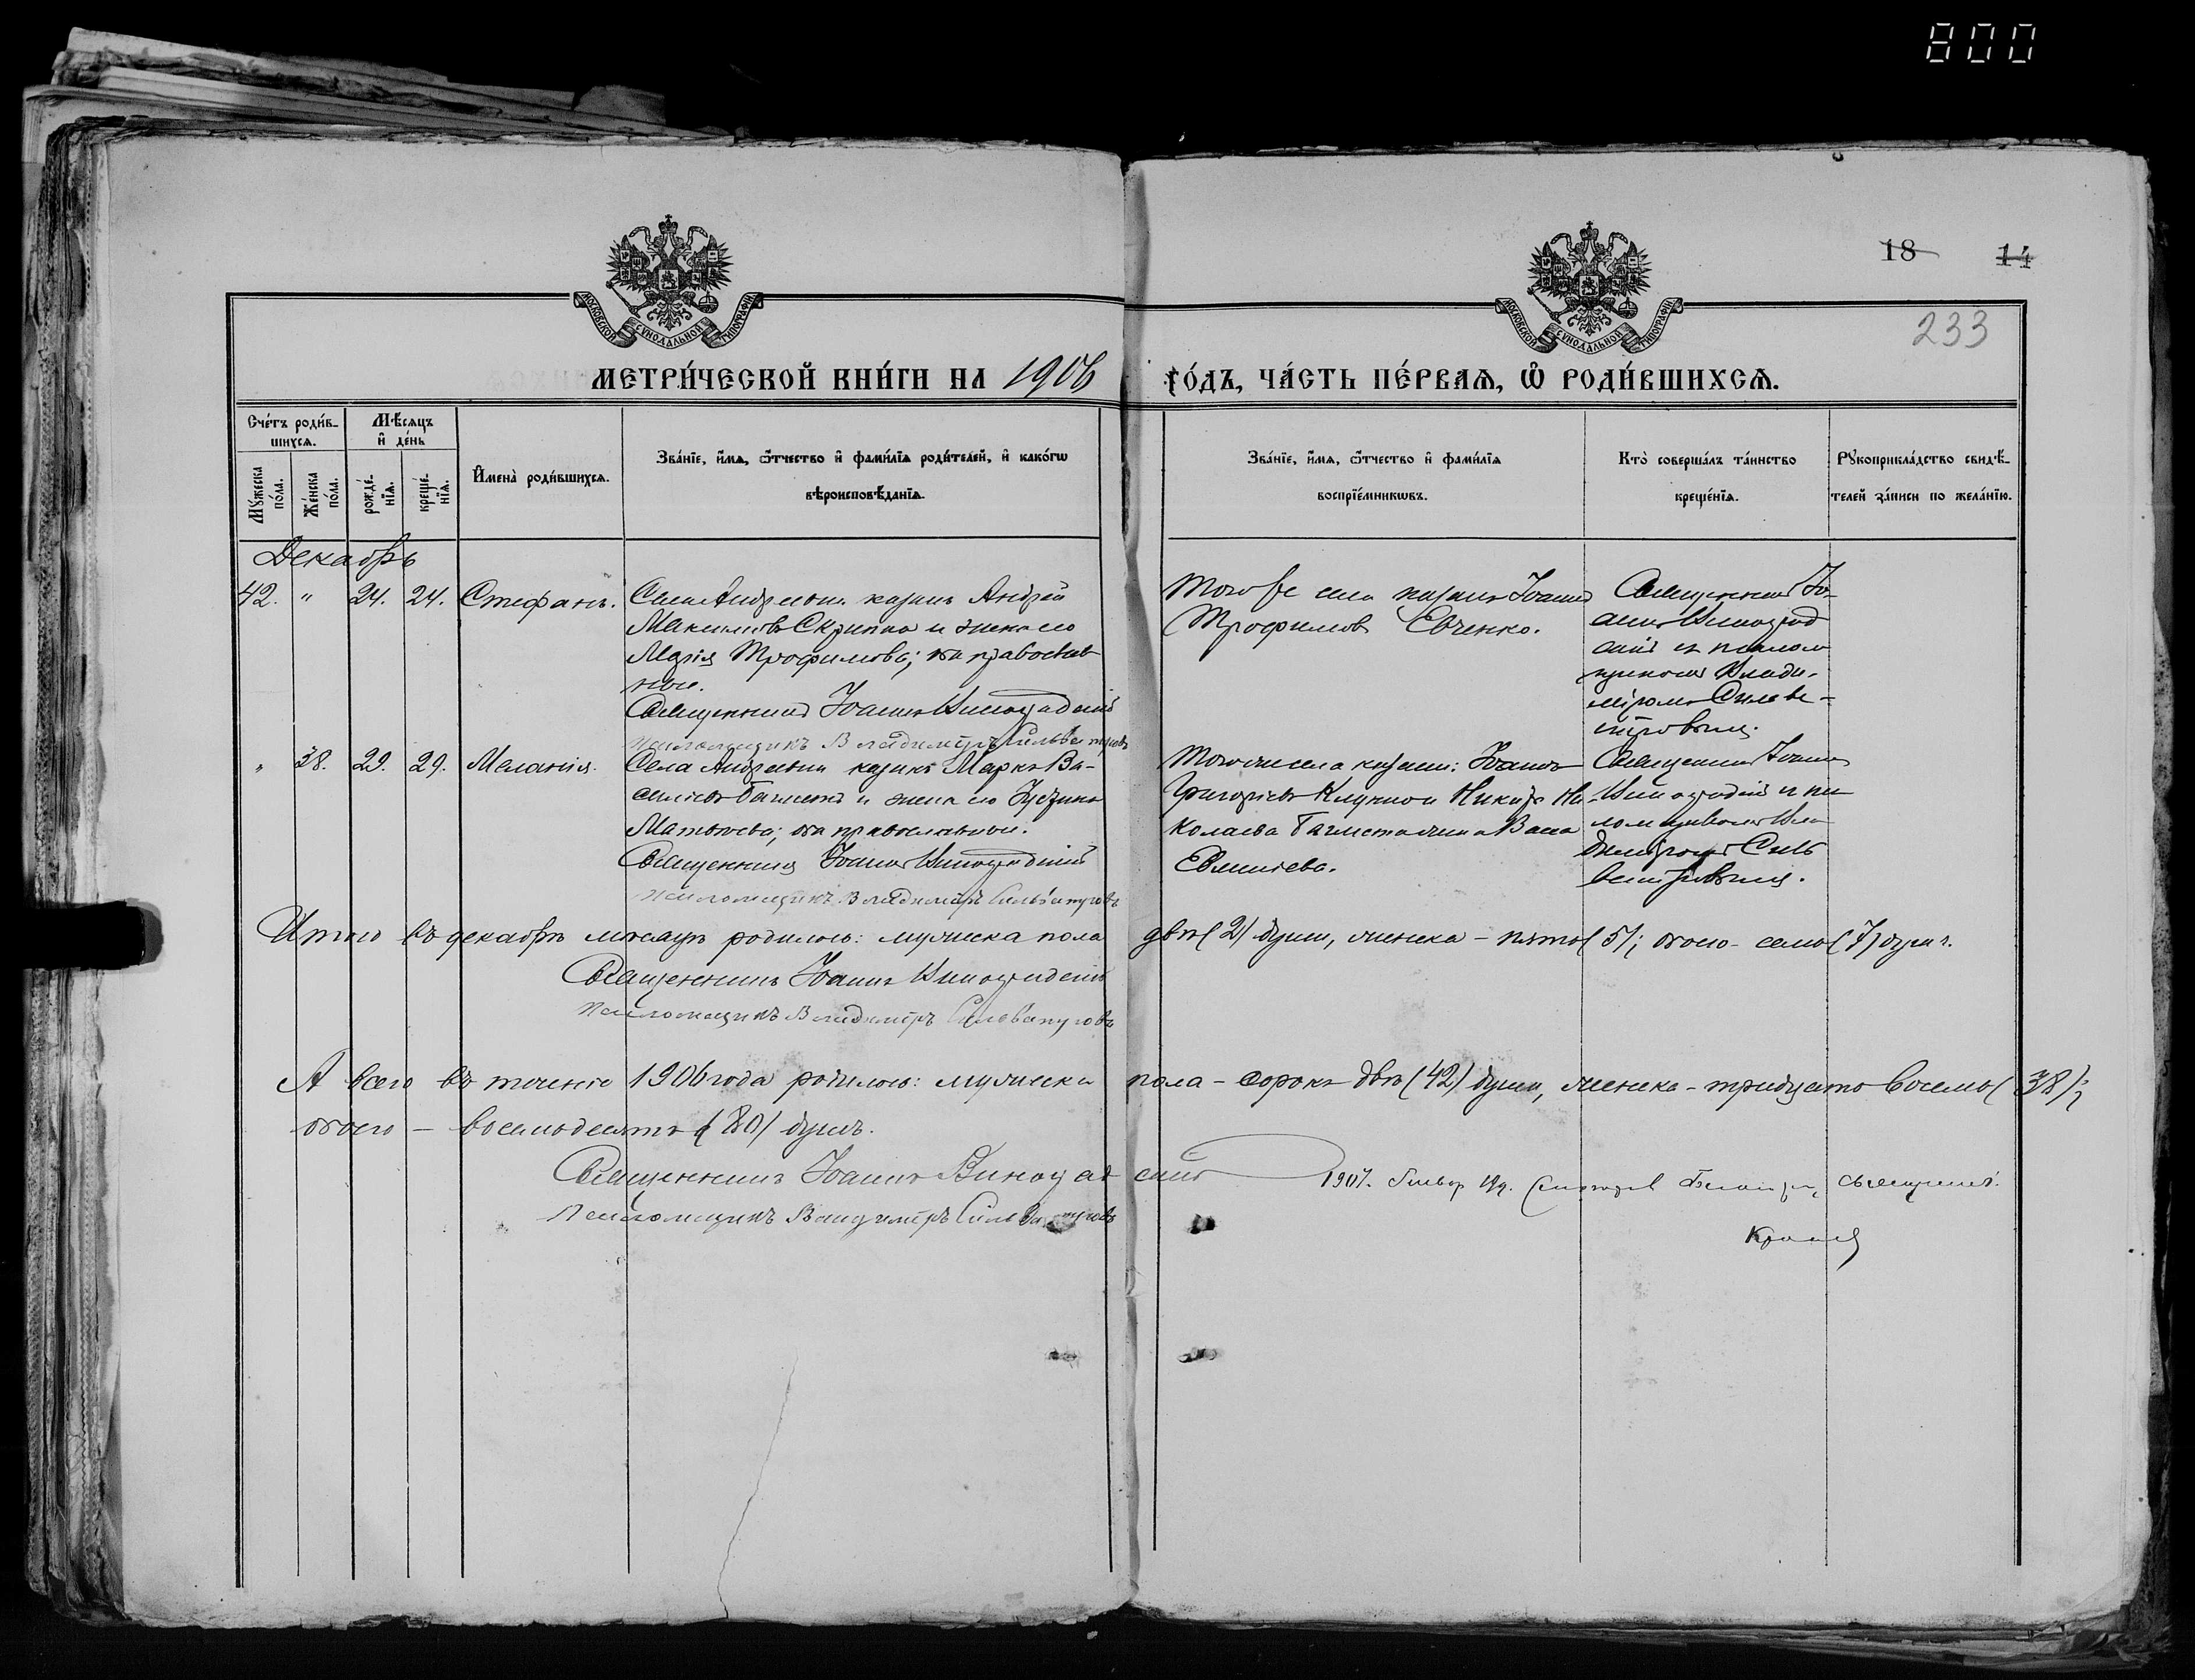 800
18 14
233
МОСКОВСКОЙ СѴНОДАЛЬНОЙ ТИПОГРАФІИ
МОСКОВСКОЙ СѴНОДАЛЬНОЙ ТИПОГРАФІИ
МЕТРИ́ЧЕСКОЙ КНИ́ГИ НА 1906 ГО́ДЪ, ЧА́СТЬ ПЕ́РВАѦ, Ѽ РОДИ́ВШИХСѦ.
Сче́тъ роди́в-
шихсѧ.
Мѣ́сѧцъ
и҆ де́нь
Мꙋ́жеска
по́ла.
Же́нска
по́ла.
рожде́-
нїѧ.
креще́-
нїѧ.
И҆мена̀ роди́вшихсѧ.
Зва́нїе, и҆́мѧ, ѻ҆́тчество и҆ фами́лїѧ роди́телей, и҆ како́гѡ
вѣроисповѣ́данїѧ.
Зва́нїе, и҆́мѧ, ѻ҆́тчество и҆ фами́лїѧ
воспрїе́мникѡвъ.
Кто̀ соверша́лъ та́инство
креще́нїѧ.
Рꙋкоприкла́дство свидѣ́-
телей за́писи по жела́нїю.
Декабрь
42. " 24. 24. Стефанъ.
Села Андреевки казакъ Андрей
Максимовъ Скрипка и жена его
Марія Трофимова; оба православ-
ные.
Священникъ Іоаннъ Виноградскій
Псаломщикъ Владиміръ Сильвестровъ
Того же села казакъ Іоаннъ
Трофимовъ Евченко.
Священникъ Іо-
аннъ Виноград
скій съ псалом
щикомъ Влади-
міромъ Сильве-
стровымъ.
" 38. 29. 29. Меланія.
Села Андреевки казакъ Марко Ва-
сильевъ и жена его
Матвѣева; оба православные.
Священникъ Іоаннъ Виноградскій
Псаломщикъ Владиміръ Сильвестровъ
Того же села казаки: Іоаннъ
Григорьевъ и Никита Ни-
колаева
Священникъ Іоаннъ
Виноградскій и пса
ломщикомъ Вла
диміромъ Силь
вестровымъ.
Итого въ декабрѣ мѣсяцѣ родилось: мужеска пола двѣ (2) души, женска - пять (5); обоего - семь (7) душъ.
Священникъ Іоаннъ Виноградскій
Псаломщикъ Владиміръ Сильвестровъ
А всего въ теченіе 1906 года родилось: мужеска пола - сорокъ двѣ (42) души, женска - тридцать восемь (38);
обоего - восемьдесятъ (80) душъ.
Священникъ Іоаннъ Виноградскій
Псаломщикъ Владиміръ Сильвестровъ
1907. священникъ